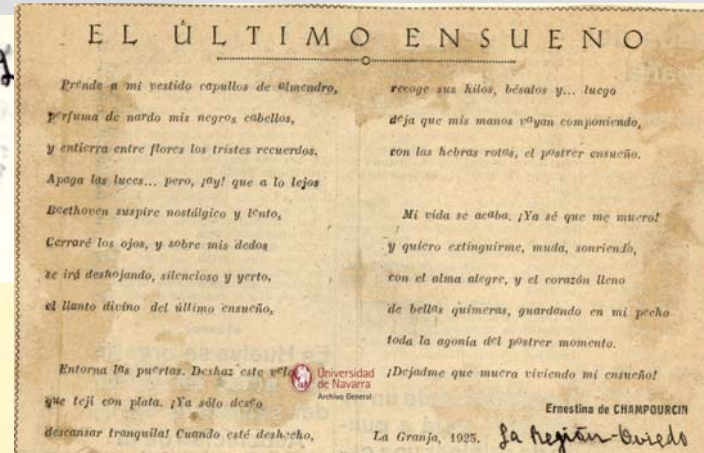 EL ÚLTIMO ENSUEÑO
Prende a mi vestido capullos de almendro,
perfuma de nardo mis negros cabellos,
y entierra entre flores los tristes recuerdos.
Apaga las luces... pero, ¡ay! que a lo lejos
Beethoven suspire nostálgico y lento,
Cerraré los ojos, y sobre mis dedos
se irá deshojando, silencioso y yerto,
el llanto divino del último ensueño,
Entorna las puertas. Deshaz este velo
que tejí con plata. ¡Ya sólo deseo
descansar tranquila! Cuando esté deshecho,
recoge sus hilos, bésalos y... luego
deja que mis manos vayan componiendo,
con las hebras rotas, el postrer ensueño.
Mi vida se acaba. ¡Ya sé que me muero!
y quiero extinguirme, muda, sonriendo,
con el alma alegre, y el corazón lleno
de bellas quimeras, guardando en mi pecho
toda la agonía del postrer momento.
¡Dejadme que muera viviendo mi ensueño!
Ernestina de CHAMPOURCIN
La Granja, 1925.
La Región-Oviedo
Universidad
de Navarra
Archivo General